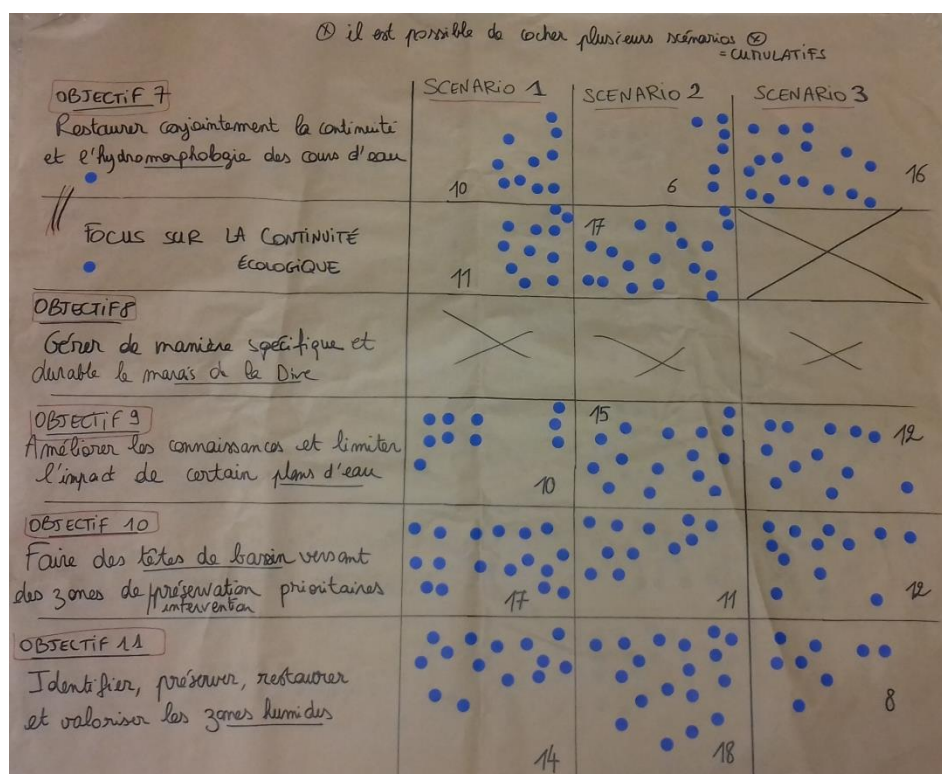 ⊗ il est possible de cocher plusieurs scénarios ⊗
= CUMULATIFS
SCENARIO 1
SCENARIO 2
SCENARIO 3
OBJECTIF 7
Restaurer conjointement la continuité
et l'hydromorphologie des cours d'eau
10
6
16
FOCUS SUR LA CONTINUITÉ
ÉCOLOGIQUE
11
17
OBJECTIF 8
Gérer de manière spécifique et
durable le marais de la Dive
OBJECTIF 9
Améliorer les connaissances et limiter
l'impact de certain plans d'eau
10
15
12
OBJECTIF 10
Faire des têtes de bassin versant
des zones de préservation prioritaires
intervention
17
11
12
OBJECTIF 11
Identifier, préserver, restaurer
et valoriser les zones humides
14
18
8